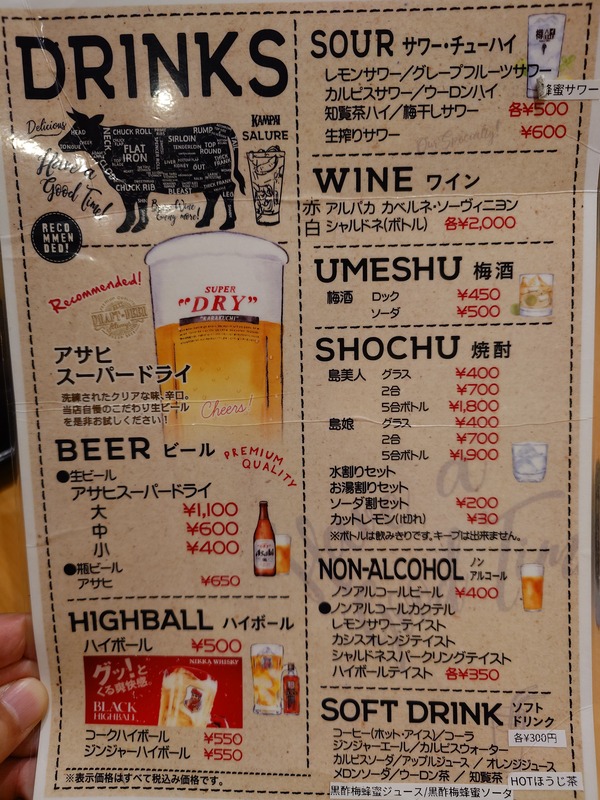 DRINKS
Delicious
Have a
Good Time!
HEAD
TONGUE
NECK
CHUCK ROLL
FLAT
IRON
CHUCK RIB
SIRLOIN
TENDERLOIN
RUMP
TOP
ROUND
OUT
THICK
FLANK
TAIL
LEG
KAMPAI
SALURE
RECO
MMEN
DED!
Recommended!
CRAFT BEER
SUPER
"DRY"
"KARAKUCHI"
Cheers!
アサヒ
スーパードライ
洗練されたクリアな味、辛口。
当店自慢のこだわり生ビール
を是非お試しください!
BEER ビール
PREMIUM
QUALITY
●生ビール
アサヒスーパードライ
大 ¥1,100
中 ¥600
小 ¥400
●瓶ビール
アサヒ ¥650
HIGHBALL ハイボール
ハイボール ¥500
グッ!と
くる爽快感。
NIKKA WHISKY
BLACK
HIGHBALL
コークハイボール ¥550
ジンジャーハイボール ¥550
※表示価格はすべて税込み価格です。
SOUR サワー・チューハイ
レモンサワー/グレープフルーツサワー
カルピスサワー/ウーロンハイ
蜂蜜サワー
知覧茶ハイ/梅干しサワー 各¥500
生搾りサワー ¥600
Our Specialty!
WINE ワイン
赤 アルパカ カベルネ・ソーヴィニヨン
白 シャルドネ(ボトル) 各¥2,000
UMESHU 梅酒
梅酒 ロック ¥450
ソーダ ¥500
SHOCHU 焼酎
島美人 グラス ¥400
2合 ¥700
5合ボトル ¥1,800
島娘 グラス ¥400
2合 ¥700
5合ボトル ¥1,900
水割りセット
お湯割りセット
ソーダ割セット ¥200
カットレモン(1切れ) ¥30
※ボトルは飲みきりです。キープは出来ません。
NON-ALCOHOL ノン
アルコール
ノンアルコールビール ¥400
●ノンアルコールカクテル
レモンサワーテイスト
カシスオレンジテイスト
シャルドネスパークリングテイスト
ハイボールテイスト 各¥350
SOFT DRINK ソフト
ドリンク
各¥300円
コーヒー(ホット・アイス)/コーラ
ジンジャーエール/カルピスウォーター
カルピスソーダ/アップルジュース / オレンジジュース
メロンソーダ/ウーロン茶 / 知覧茶
HOTほうじ茶
黒酢梅蜂蜜ジュース/黒酢梅蜂蜜ソーダ